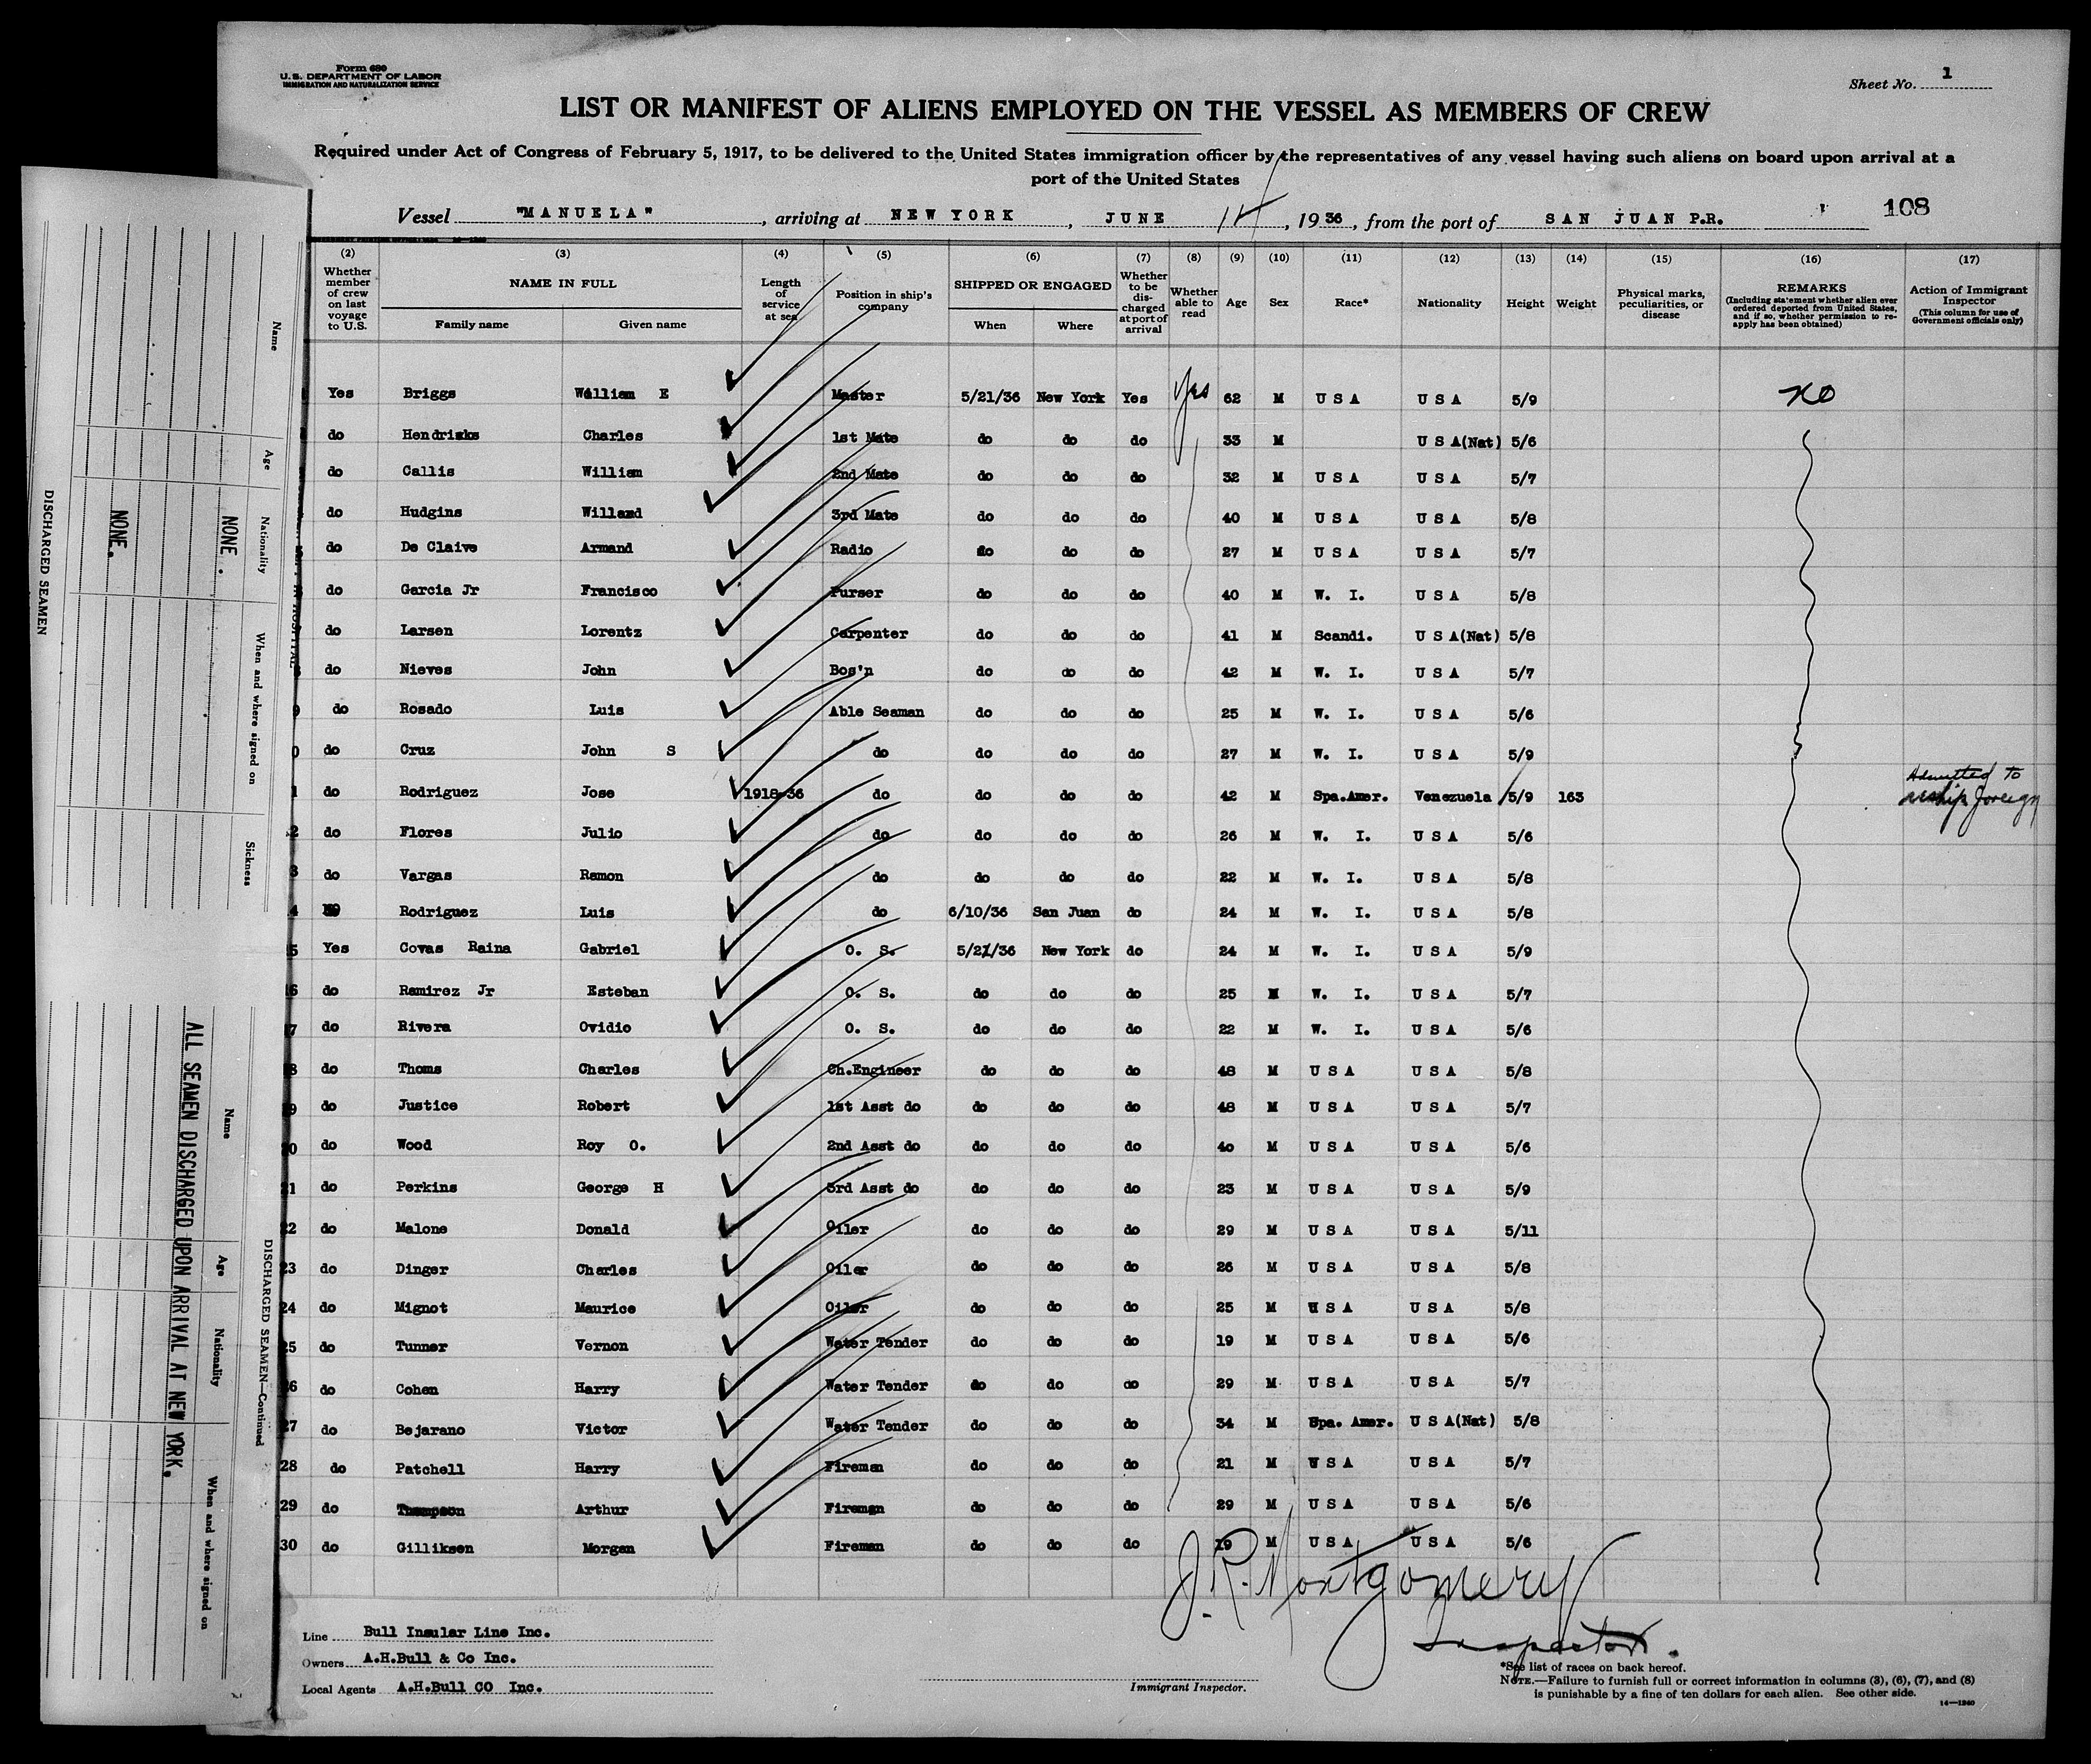 Form 689
U.S. DEPARTMENT OF LABOR
IMMIGRATION AND NATURALIZATION SERVICE
Sheet No. 1
LIST OR MANIFEST OF ALIENS EMPLOYED ON THE VESSEL AS MEMBERS OF CREW
Required under Act of Congress of February 5, 1917, to be delivered to the United States immigration officer by the representatives of any vessel having such aliens on board upon arrival at a
port of the United States
Vessel "MANUELA", arriving at NEW YORK, JUNE 14, 1936, from the port of SAN JUAN P.R. 108
(2) (3) (4) (5) (6) (7) (8) (9) (10) (11) (12) (13) (14) (15) (16) (17)
Whether member of crew on last voyage to U.S.
NAME IN FULL
Family name Given name
Length of service at sea
Position in ship's company
SHIPPED OR ENGAGED
When Where
Whether to be discharged at port of arrival
Whether able to read
Age Sex Race* Nationality Height Weight
Physical marks, peculiarities, or disease
REMARKS
(Including statement whether alien ever ordered deported from United States, and if so, whether permission to reapply has been obtained)
Action of Immigrant Inspector
(This column for use of Government officials only)
Yes Briggs William E Master 5/21/36 New York Yes Yes 62 M USA USA 5/9 NO
do Hendricks Charles 1st Mate do do do 33 M USA(Nat) 5/6
do Callis William 2nd Mate do do do 32 M USA USA 5/7
do Hudgins Willard 3rd Mate do do do 40 M USA USA 5/8
do De Claive Armand Radio do do do 27 M USA USA 5/7
do Garcia Jr Francisco Purser do do do 40 M W. I. USA 5/8
do Larsen Lorentz Carpenter do do do 41 M Scandi. USA(Nat) 5/8
do Nieves John Bos'n do do do 42 M W. I. USA 5/7
9 do Rosado Luis Able Seaman do do do 25 M W. I. USA 5/6
0 do Cruz John S do do do do 27 M W. I. USA 5/9
1 do Rodriguez Jose 1918-36 do do do do 42 M Spa.Amer. Venezuela 5/9 163 Admitted to reship foreign
2 do Flores Julio do do do do 26 M W. I. USA 5/6
3 do Vargas Ramon do do do do 22 M W. I. USA 5/8
4 NO Rodriguez Luis do 6/10/36 San Juan do 24 M W. I. USA 5/8
5 Yes Covas Raina Gabriel O. S. 5/21/36 New York do 24 M W. I. USA 5/9
6 do Ramirez Jr Esteban O. S. do do do 25 M W. I. USA 5/7
7 do Rivera Ovidio O. S. do do do 22 M W. I. USA 5/6
8 do Thoms Charles Ch.Engineer do do do 48 M USA USA 5/8
9 do Justice Robert 1st Asst do do do do 48 M USA USA 5/7
20 do Wood Roy O. 2nd Asst do do do do 40 M USA USA 5/6
21 do Perkins George H 3rd Asst do do do do 23 M USA USA 5/9
22 do Malone Donald Oiler do do do 29 M USA USA 5/11
23 do Dinger Charles Oiler do do do 26 M USA USA 5/8
24 do Mignot Maurice Oiler do do do 25 M USA USA 5/8
25 do Tunner Vernon Water Tender do do do 19 M USA USA 5/6
26 do Cohen Harry Water Tender do do do 29 M USA USA 5/7
27 do Bejarano Victor Water Tender do do do 34 M Spa. Amer. USA(Nat) 5/8
28 do Patchell Harry Fireman do do do 21 M USA USA 5/7
29 do Thompson Arthur Fireman do do do 29 M USA USA 5/6
30 do Gilliksen Morgan Fireman do do do 19 M USA USA 5/6
J. R. Montgomery
Inspector.
Line Bull Insular Line Inc.
Owners A.H.Bull & Co Inc.
Local Agents A.H.Bull CO Inc.
Immigrant Inspector.
*See list of races on back hereof.
NOTE.—Failure to furnish full or correct information in columns (3), (6), (7), and (8)
is punishable by a fine of ten dollars for each alien. See other side.
14—1240
DISCHARGED SEAMEN
Name Age Nationality When and where signed on Sickness
NONE.
NONE.
DISCHARGED SEAMEN—Continued
Name Age Nationality When and where signed on
ALL SEAMEN DISCHARGED UPON ARRIVAL AT NEW YORK.